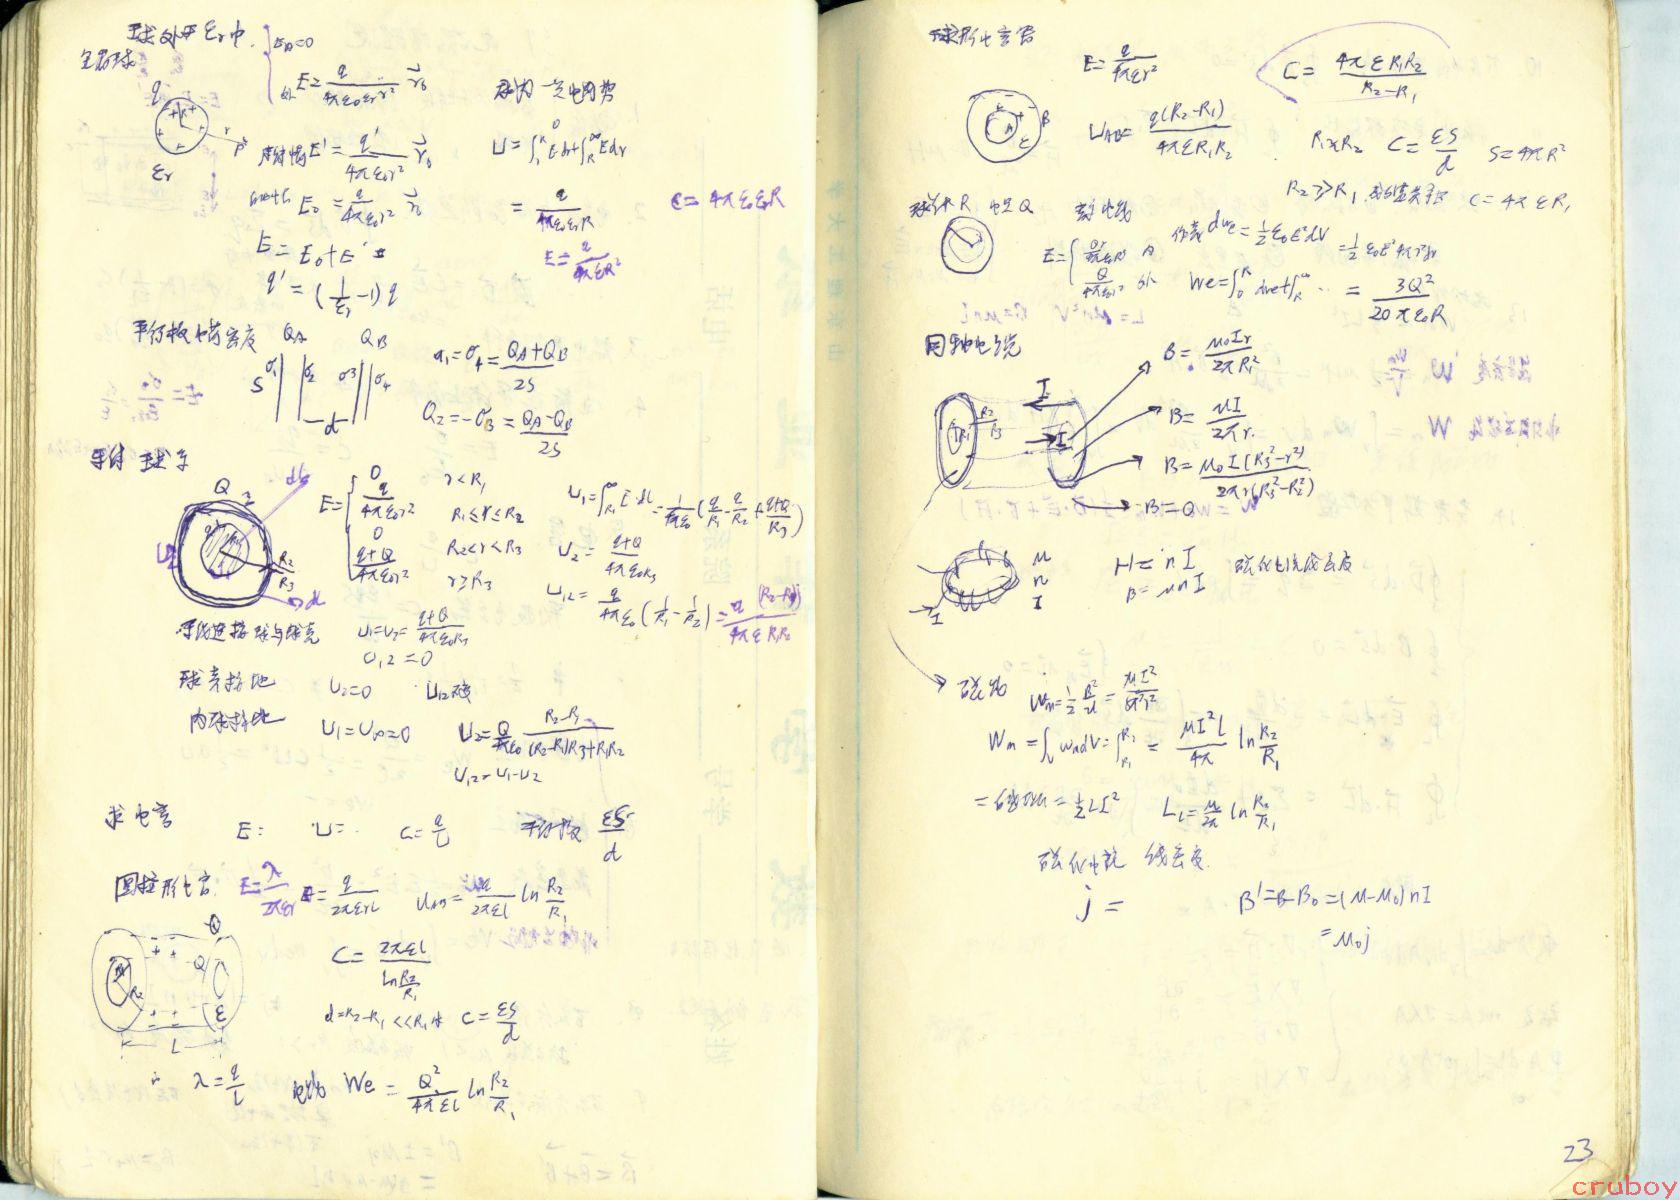 球外 εr 中
E内=0
外 E = q/4πε0εr r² r̂0
q
R
r
P
εr
E' = q'/4πε0r² r̂0
E0 = q/4πε0r² r̂0
E = E0 + E'
q' = (1/εr − 1) q
U = ∫0R Edr + ∫R∞ Edr
= q/4πε0εrR
E = q/4πεR²
C = 4πε0εrR
平行板电荷密度 QA QB
σ1 σ2 σ3 σ4
S
d
σ1 = σ4 = QA+QB/2S
Q2 = −σ3 = QA−QB/2S
Q
R2
R3
E = { 0 r < R1
q/4πε0r² R1 ≤ r ≤ R2
0 R2 < r < R3
q+Q/4πε0r² r ≥ R3
U1 = ∫R1∞ E·dl = 1/4πε0 (q/R1 − q/R2 + q+Q/R3)
U2 = q+Q/4πε0R3
U12 = q/4πε0 (1/R1 − 1/R2) = q(R2−R1)/4πεR1R2
导线连接球与球壳 U1=U2= q+Q/4πε0R3
U12 = 0
球壳接地 U2=0 U12不变
内球接地 U1=U∞=0 U2= Q/4πε0 R2−R1/(R2−R1)R3+R1R2
U12=U1−U2
求电容 E: U= C= q/U 平行板 εS/d
圆柱形电容 E= λ/2πεr E= q/2πεrl UAB= q/2πεl ln R2/R1
Q
−Q
ε
R2
L
C = 2πεl/ln R2/R1
d=R2−R1<<R1时 C = εS/d
λ = q/l 电能 We = Q²/4πεl ln R2/R1
球形电容
E= q/4πεr²
C = 4πεR1R2/R2−R1
A
B
ε
UAB= q(R2−R1)/4πεR1R2
R1≈R2 C= εS/d S=4πR²
R2>>R1 C=4πεR1
球体R 电量Q
E={ Qr/4πε0R³ 内
Q/4πε0r² 外
dwe=½ε0E²dV =½ε0E²4πr²dr
We=∫0R dwe+∫R∞ ·· = 3Q²/20πε0R
同轴电缆
R1
R2
R3
I
I
B= μ0Ir/2πR1²
B= μI/2πr
B= μ0I(R3²−r²)/2πr(R3²−R2²)
B=0
μ
n
I
I
H = nI 磁化电流线密度
B = μnI
磁能 wm=½ B²/μ = μI²/8π²r²
Wm = ∫ wmdV=∫R1R2 = μI²l/4π ln R2/R1
= ½LI² Ll= μ/2π ln R2/R1
磁化电流 线密度
j = B'=B−B0=(μ−μ0)nI
= μ0j
23
cruboy